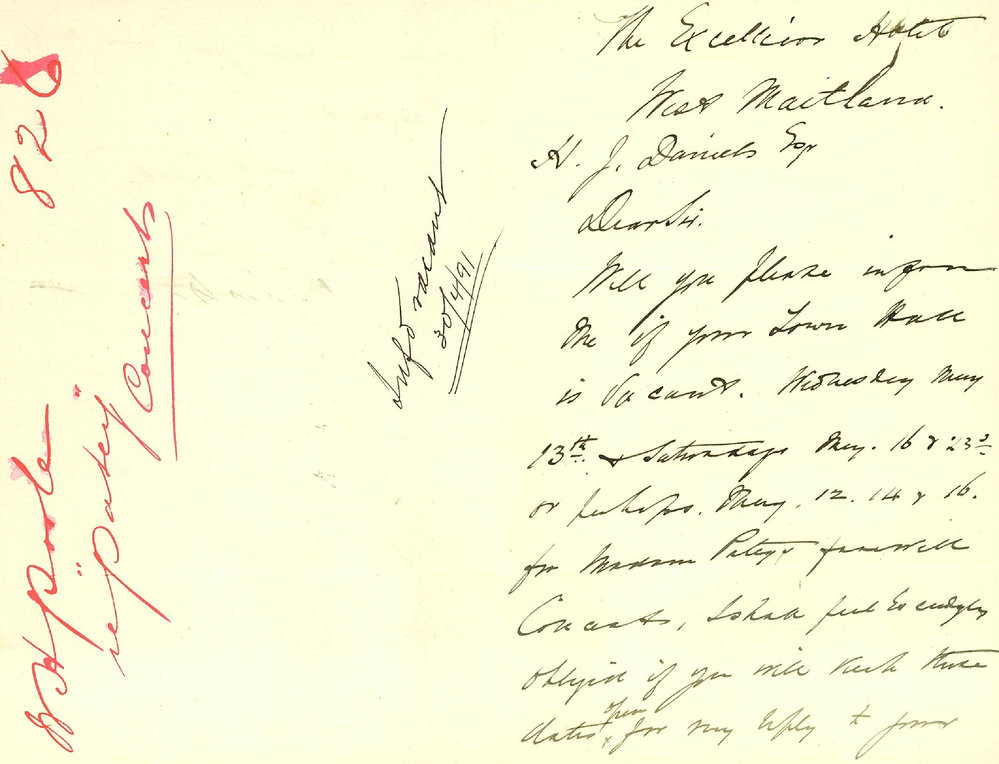 The Excelsior Hotel
West Maitland.
H. J. Daniels Esq
Dear Sir.
Will you please inform
me if your Town Hall
is Vacant. Wednesday May
13th & Saturdays May. 16 & 23rd
or perhaps. May. 12. 14 & 16.
for Madame Patey's farewell
Concerts, I shall feel exceedingly
obliged if you will keep these
dates open for my reply to your
Infd vacant
30/4/91
828
W H Poole
re "Patey"
Concerts